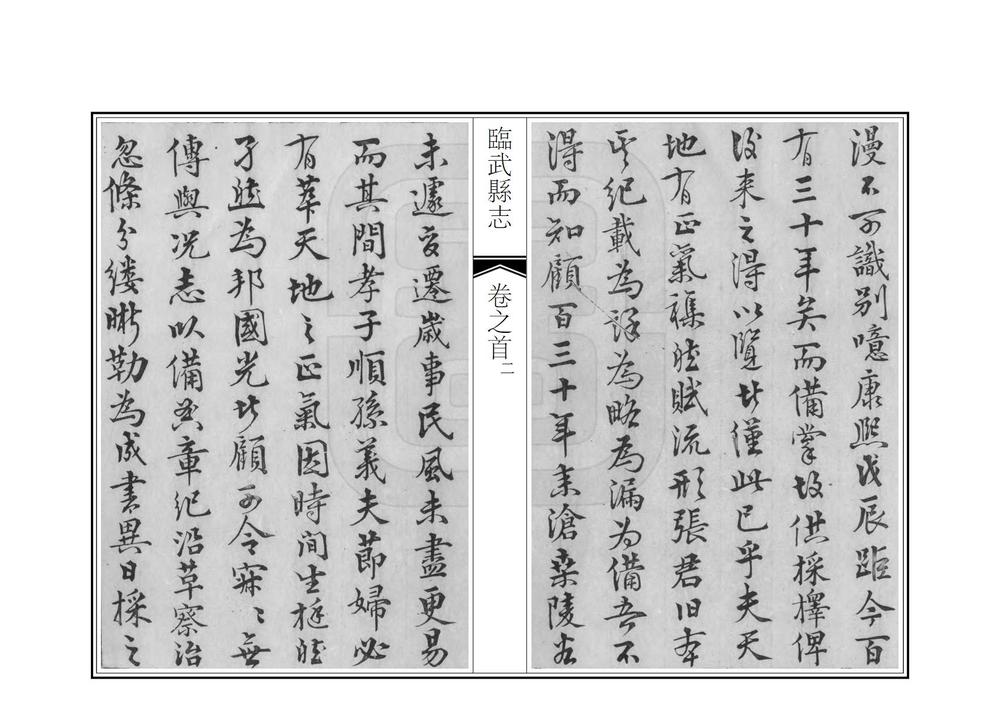 漫不可識别噫康熙戊辰距今百
有三十年矣而備掌故供採擇俾
後来之得以覽者僅此已乎夫天
地有正氣雜然賦流形張君旧本
其紀載為詳為略為漏为備吾不
得而知顧百三十年来滄桑陵谷
臨武縣志
卷之首
二
未遽變遷歲事民風未盡更易
而其間孝子順孫義夫節婦必
有萃天地之正氣因時间生挺然
孑然為邦國光者顧可令寂〻無
傳與况志以備章紀沿革察治
忽條分缕晰勒為成書異日採之